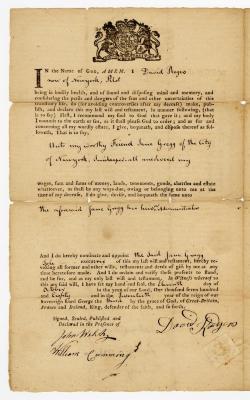 IN the Name of GOD, AMEN. I David Rogers
now of Newyork, Pilot
being in bodily health, and of sound and disposing mind and memory, and
considering the perils and dangers of the seas and other uncertainties of this
transitory life, do (for avoiding controversies after my decease) make, pub-
lish, and declare this my last will and testament, in manner following, (that
is to say) First, I recommend my soul to God that gave it; and my body
I commit to the earth or sea, as it shall please God to order; and as for and
concerning all my worldly estate, I give, bequeath, and dispose thereof as fol-
loweth, That is to say,
Unto my worthy Friend Jane Gregg of the City
of Newyork,
wages, sum and sums of money, lands, tenements, goods, chattles and estate
whatsoever, as shall be any ways due, owing or belonging unto me at the
time of my decease, I do give, devise, and bequeath the same unto
the aforesaid Jane Gregg her heirs
And I do hereby nominate and appoint the said Jane Gregg
Sole execut of this my last will and testament, hereby re-
voking all former and other wills, testaments and deeds of gift by me at any
time heretofore made. And I do ordain and ratify these presents to stand,
and be for, and as my only last will and testament. In Witness whereof to
this my said will, I have set my hand and seal, the day of
October in the year of our Lord, One thousand seven hundred
and Eighty and in the year of the reign of our
Sovereign Lord George the by the grace of God, of Great-Britain,
France and Ireland, King, defender of the faith, and so forth.
Signed, Sealed, Published and
Declared in the Presence of
John
William Cumming
David Rogers